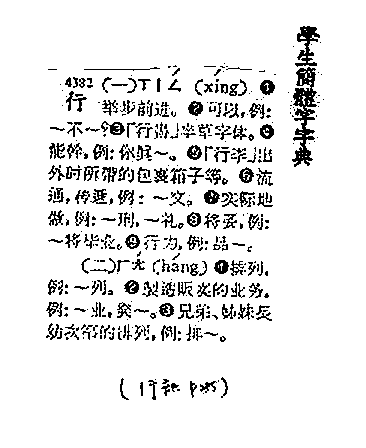 學生簡體字字典
4382 (一)ㄒㄧㄥˊ (xíng) ❶
行 举步前进。❷可以,例:
～不～?❸「行書」,半草字体。❹
能幹,例:你眞～。❺「行李」,出
外时所带的包裹箱子等。❻流
通,传递,例:～文。❼实际地
做,例:～刑,～礼。❽将要,例:
～将毕业。❾行为,例:品～。
(二)ㄏㄤˊ (háng) ❶排列,
例:～列。❷製造贩卖的业务,
例:～业,～。❸兄弟、姊妹長
幼次第的排列,例:排～。
(行 P.85)